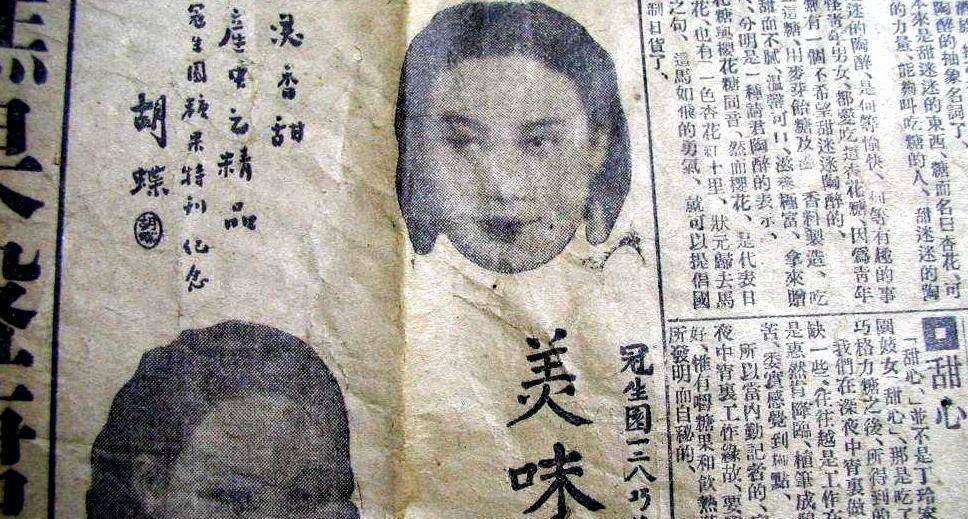 陶醉的抽象名詞了、
本來是甜迷迷的東西、糖而名曰香花、可
的力量、能夠叫吃糖的人、甜迷迷的陶
迷的陶醉、是何等愉快、何等有趣的事
怪青年男女、都愛吃這香花糖、因爲青年
無有一個不希望甜迷迷陶醉的、
這糖、用麥芽飴糖及 香料製造、吃
甜而不膩、溫馨可口、滋養極富、拿來贈
、分明是一種請君陶醉的表示、
花糖與櫻花糖同音、然而櫻花、是代表日
花、也有一色杏花紅十里、狀元歸去馬
之句、這馬如飛的勇氣、就可以提倡國
制日貨了、
甜心
「甜心」並不是丁玲案
妓女「甜心」、那是吃了
巧格力糖之後、所得到的
我們在深夜中宵裏做
缺一些、往往越是工作在
是惠然肯降臨、植筆成
苦、委實感覺到極點、
所以當內勤記者的、
夜中宵裏工作緣故、要
好、惟有嚼糖果和飲熱
所發明而自秘的、
冠生園一二八巧
美味
香甜
之精品
冠生園糖果特刊紀念
胡蝶